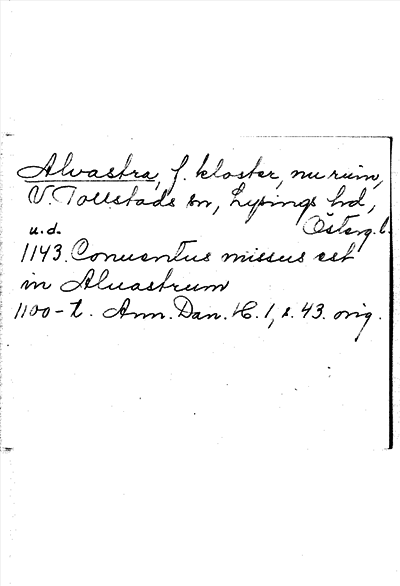 Alvastra, f. kloster, nu ruin,
V. Tollstads sn, Lysings hd,
Österg. l.
u.d.
1143. Conuentus missus est
in Aluastrum
1100-t. Ann. Dan. H. 1, s. 43. orig.